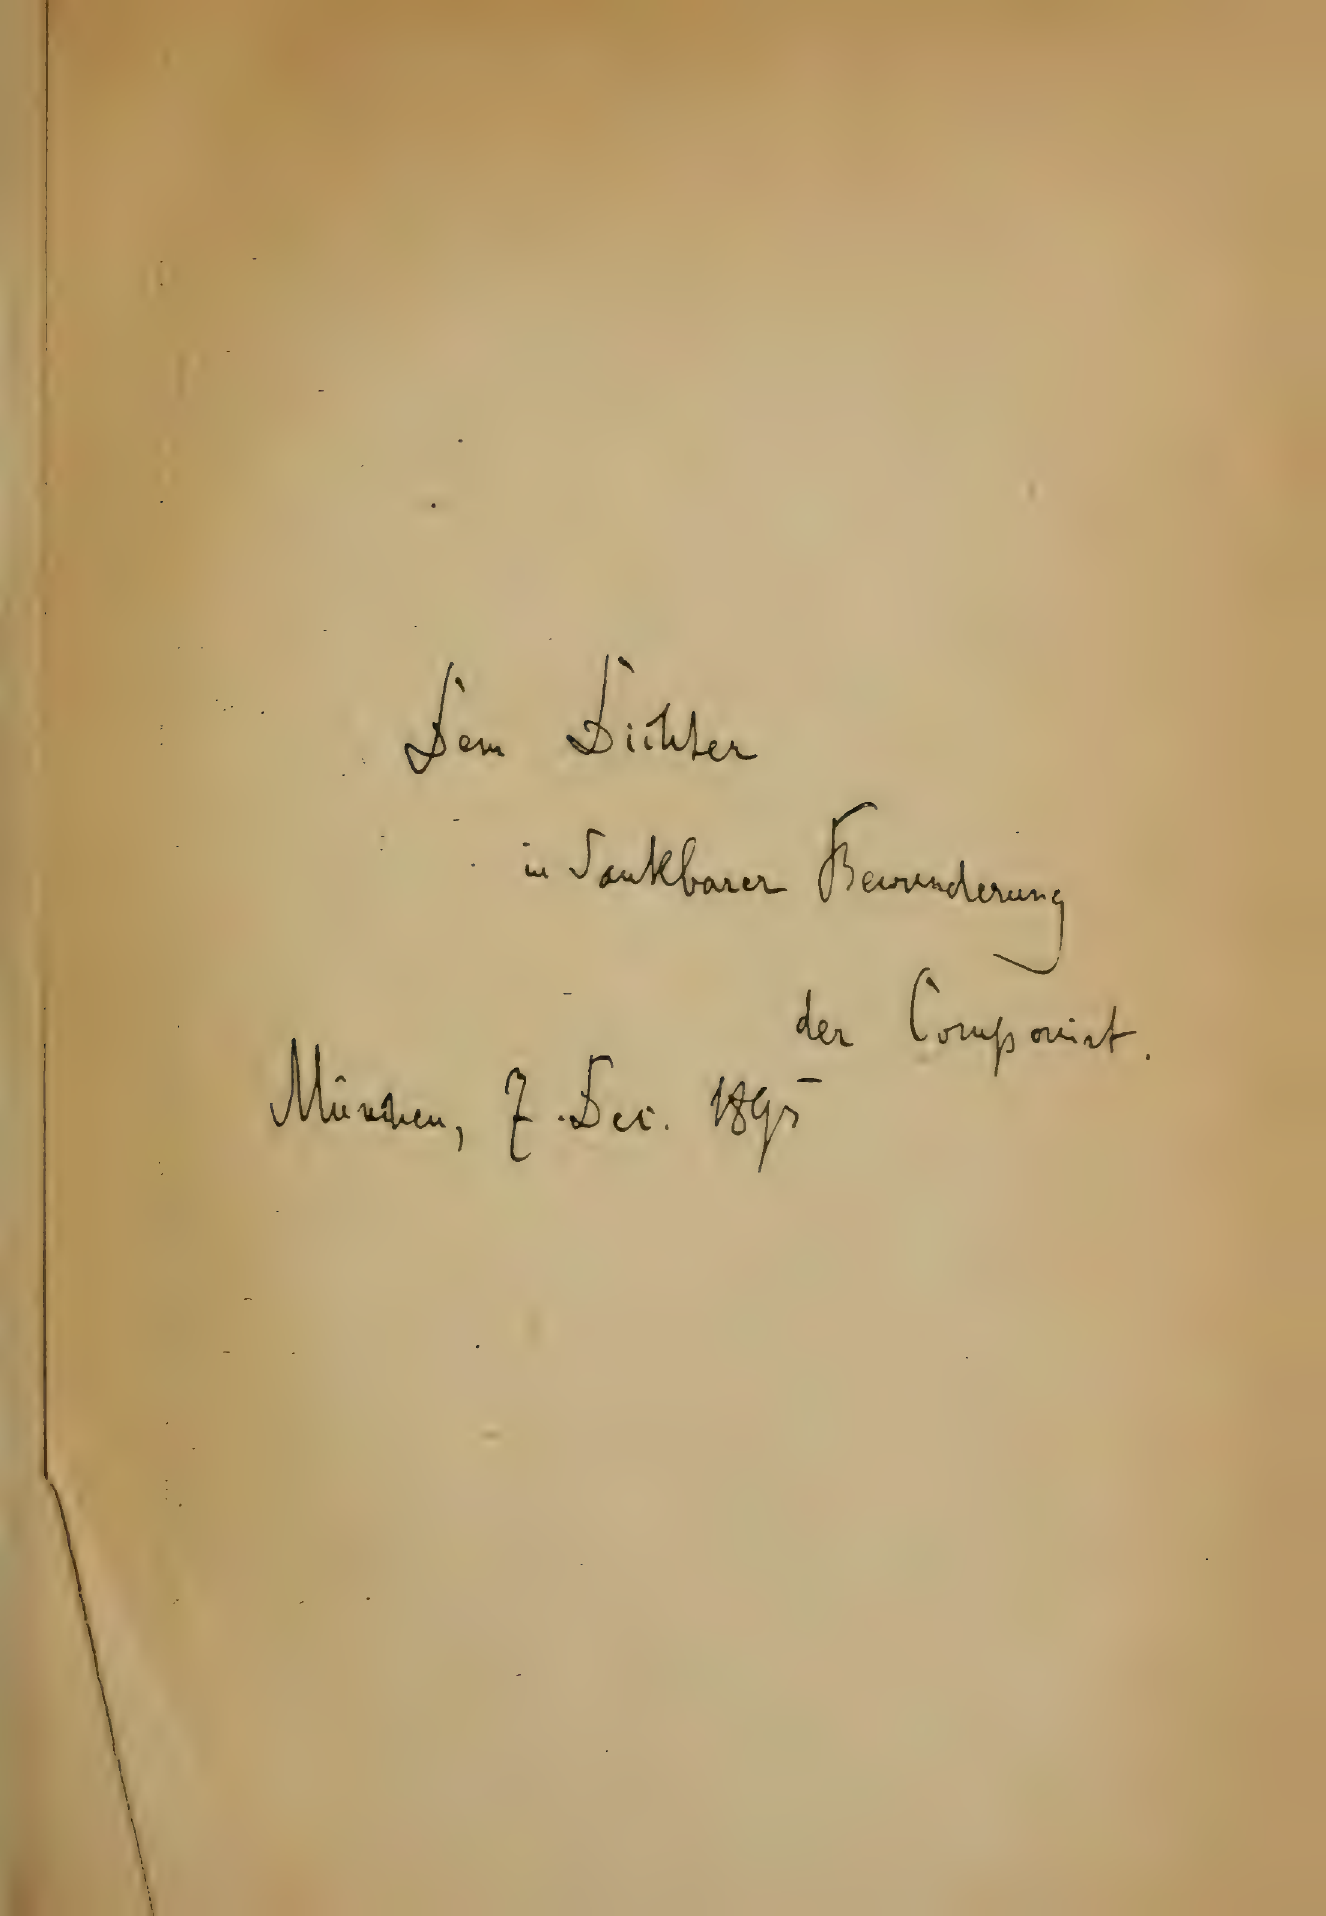 Dem Dichter
in dankbarer Bewunderung
der Componist.
München, 7. Dec. 1895